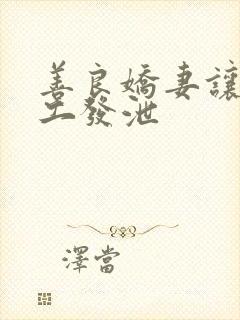 善良嬌妻讓
工發泄
澤當